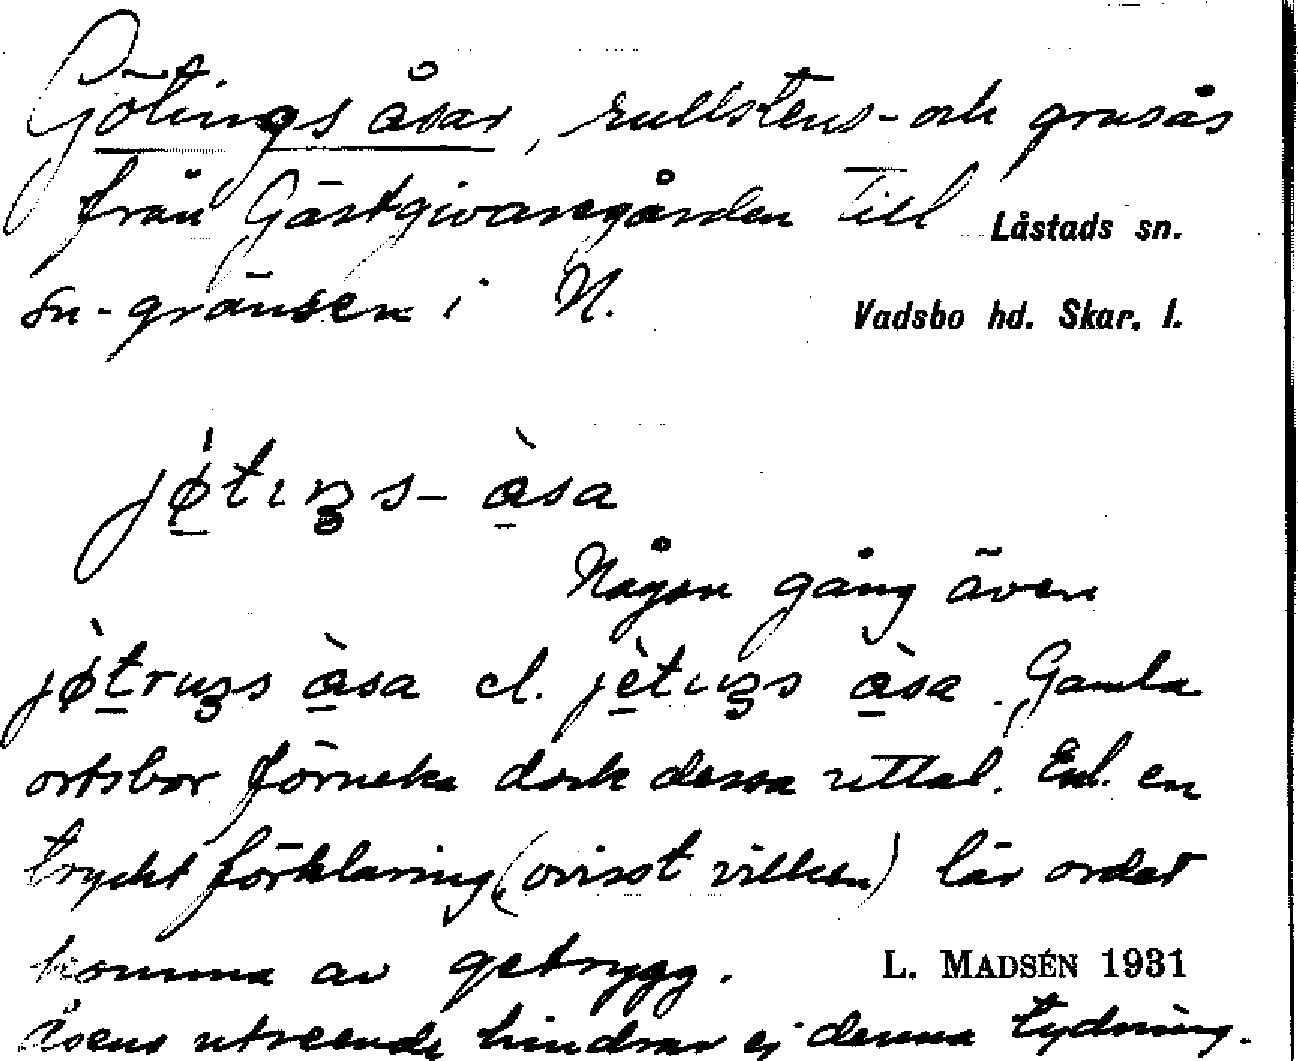 Götings åsar, rullstens- och grusås
från Gästgivaregården till Låstads sn.
sn-gränsen i N. Vadsbo hd. Skar. l.
jø̀tıŋs- àsa
Någon gång även
jø̀truŋs àsa el. jètuŋs àsa. Gamla
ortsbor förneka dock dessa uttal. Enl. en
tryckt förklaring (ovisst vilken) lär ordet
komma av getrygg. L. MADSÉN 1931
Åsens utseende hindrar ej denna tydning.